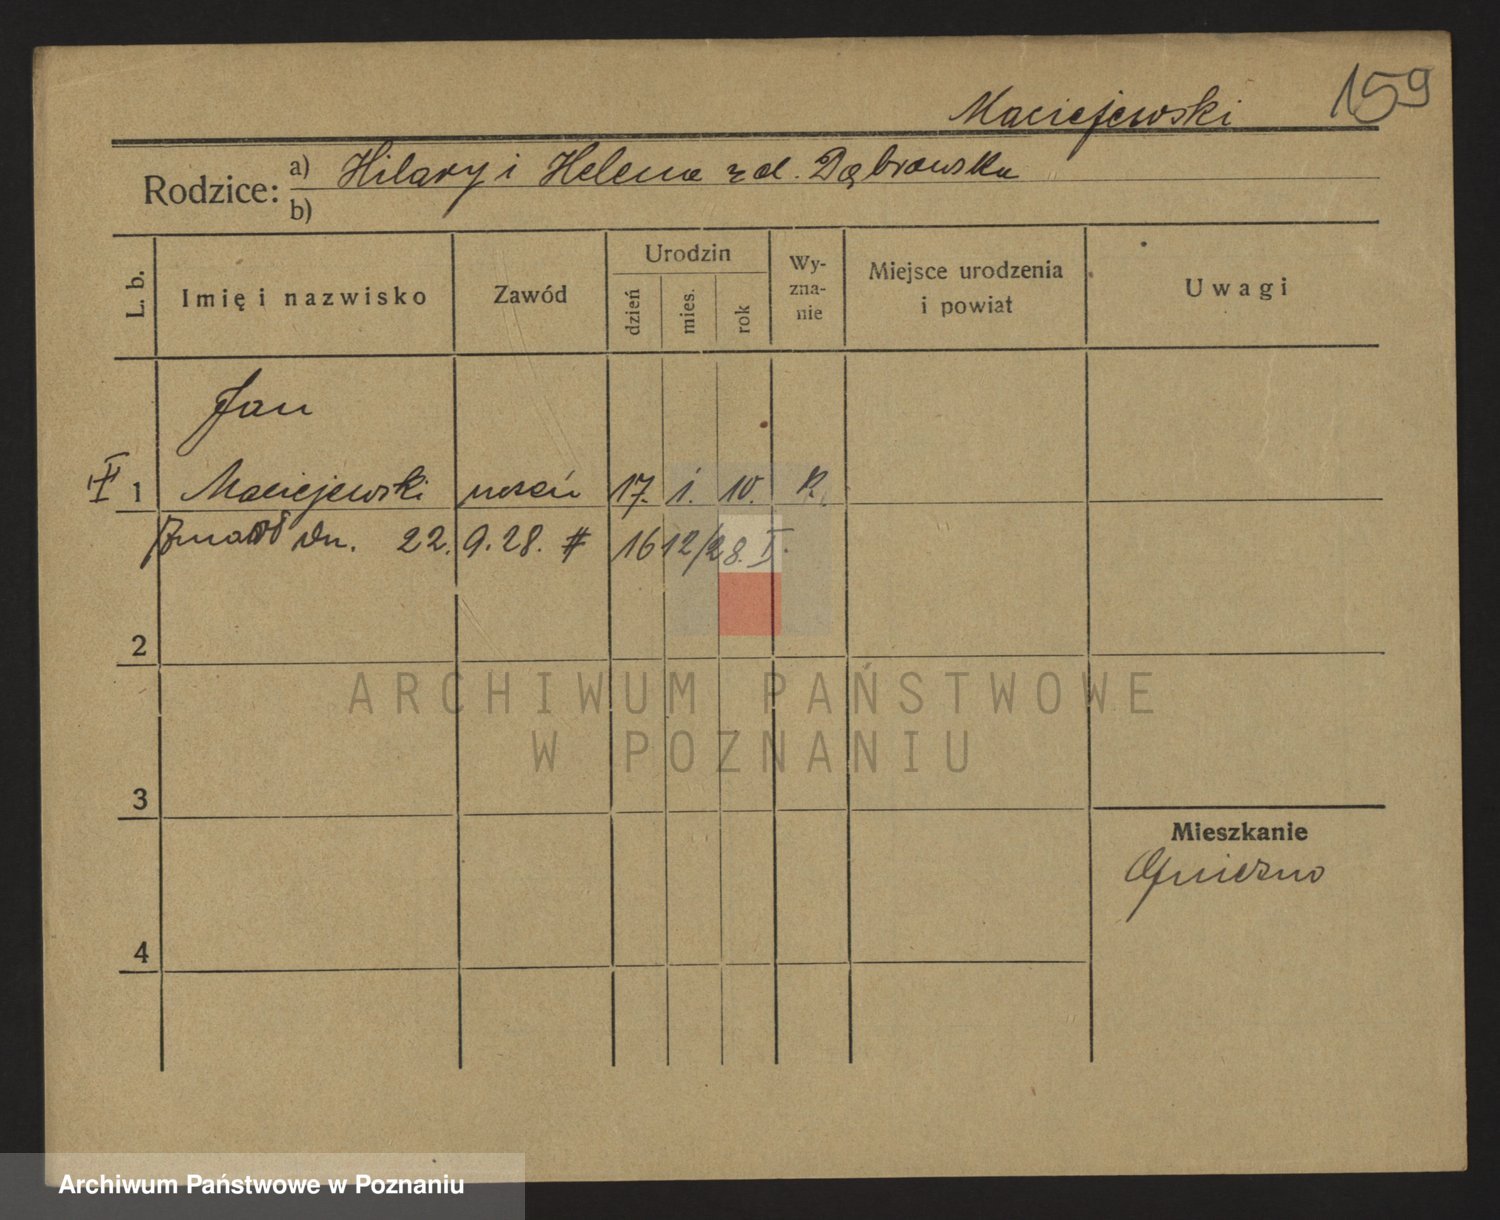 Maciejewski 159
Rodzice: a) Hilary i Helena zd. Dąbrowska
b)
L. b. Imię i nazwisko Zawód Urodzin dzień mies. rok Wy-zna-nie Miejsce urodzenia i powiat Uwagi
Jan
1 Maciejewski uczeń 17. 1. 10. R.
Zmarł dn. 22. 9. 28. # 16 12/28. I.
2
3
Mieszkanie
Gniezno
4
ARCHIWUM PAŃSTWOWE
W POZNANIU
Archiwum Państwowe w Poznaniu